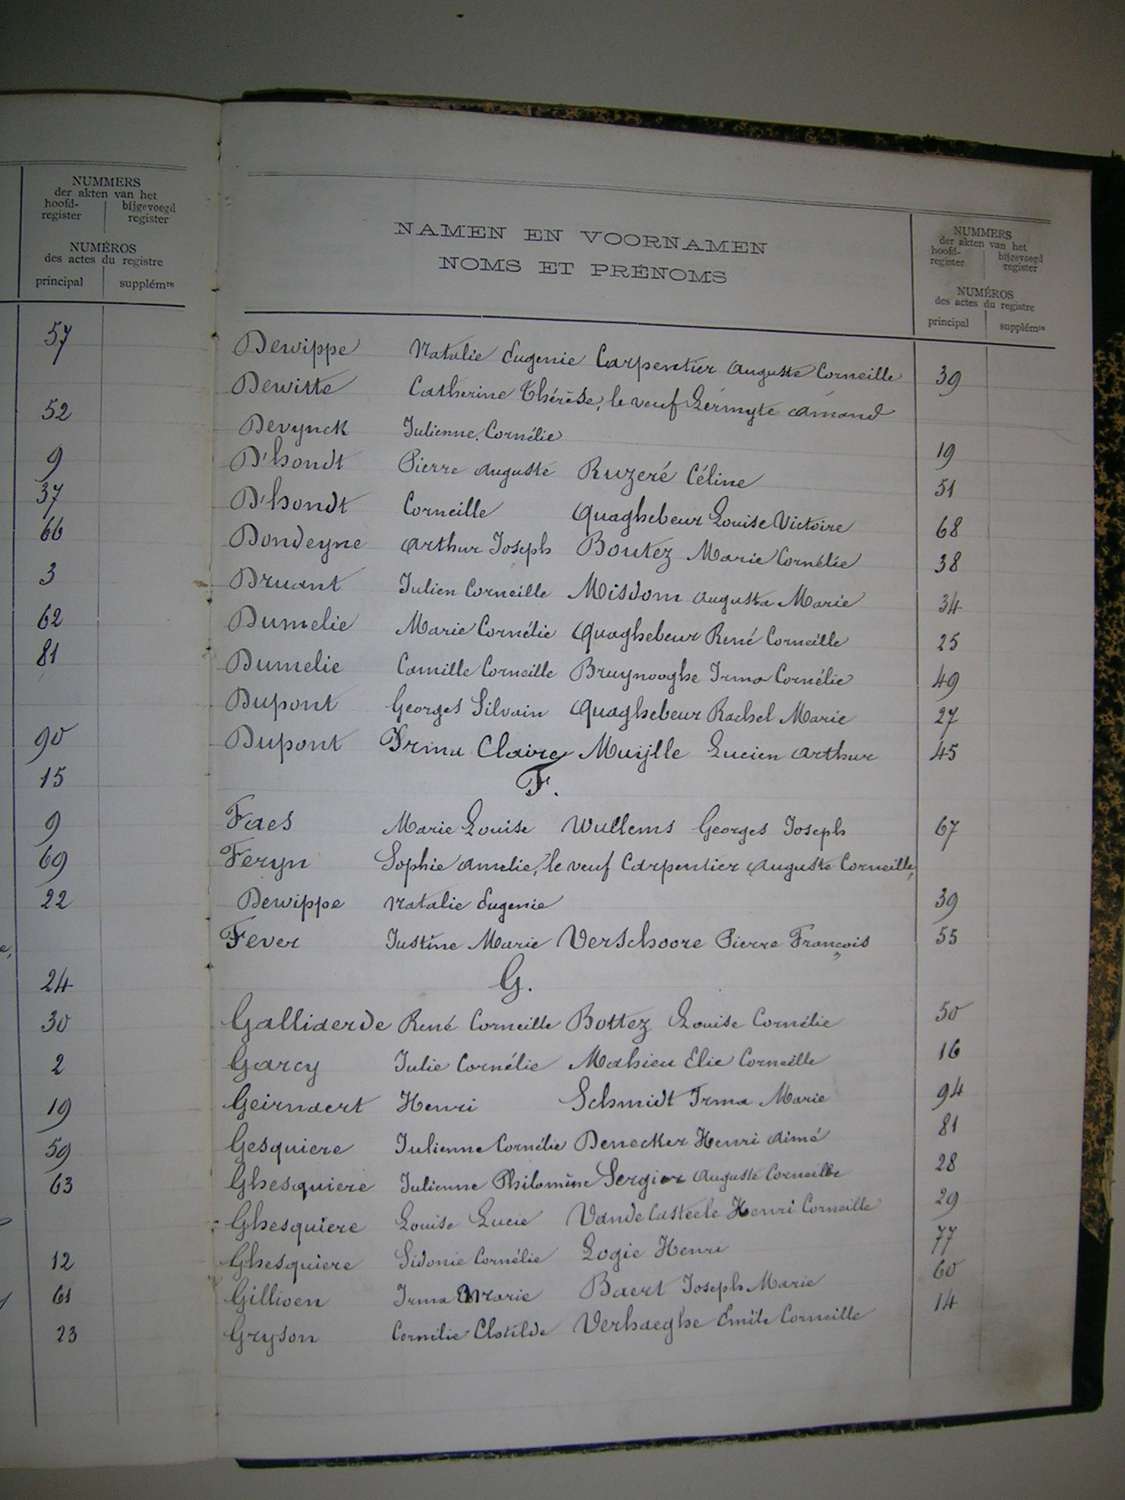 NUMMERS
der akten van het
hoofd-register bijgevoegd register
NUMÉROS
des actes du registre
principal supplém^re
57
52
9
37
66
3
62
81
90
15
9
69
22
24
30
2
19
59
63
12
61
23
NAMEN EN VOORNAMEN
NOMS ET PRÉNOMS
NUMMERS
der akten van het
hoofd-register bijgevoegd register
NUMÉROS
des actes du registre
principal supplém^re
Dewippe Natalie Eugenie Carpentier Auguste Corneille 39
Dewitte Catherine Thérèse, le veuf Lermyte Amand
Devynck Julienne Cornélie 19
D'hondt Pierre Auguste Ruzeré Céline 51
D'hondt Corneille Quaghebeur Louise Victoire 68
Dondeyne Arthur Joseph Boutez Marie Cornélie 38
Druant Julien Corneille Misdom Augusta Marie 34
Dumelie Marie Cornélie Quaghebeur René Corneille 25
Dumelie Camille Corneille Bruynooghe Irma Cornélie 49
Dupont Georges Silvain Quaghebeur Rachel Marie 27
Dupont Irma Claire Muijlle Lucien Arthur 45
F.
Faes Marie Louise Wullems Georges Joseph 67
Feryn Sophie Amelie, le veuf Carpentier Auguste Corneille,
Dewippe Natalie Eugenie 39
Fever Justine Marie Verschoore Pierre François 55
G.
Galliaerde René Corneille Bottez Louise Cornélie 50
Garcy Julie Cornélie Mahieu Elie Corneille 16
Geirnaert Henri Schmidt Irma Marie 94
Gesquiere Julienne Cornélie Denecker Henri Aimé 81
Ghesquiere Julienne Philomène Sergier Auguste Corneille 28
Ghesquiere Louise Lucie Vande Casteele Henri Corneille 29
Ghesquiere Sidonie Cornélie Logie Henri 77
Gillioen Irma Marie Baert Joseph Marie 60
Gryson Cornélie Clotilde Verhaeghe Emile Corneille 14